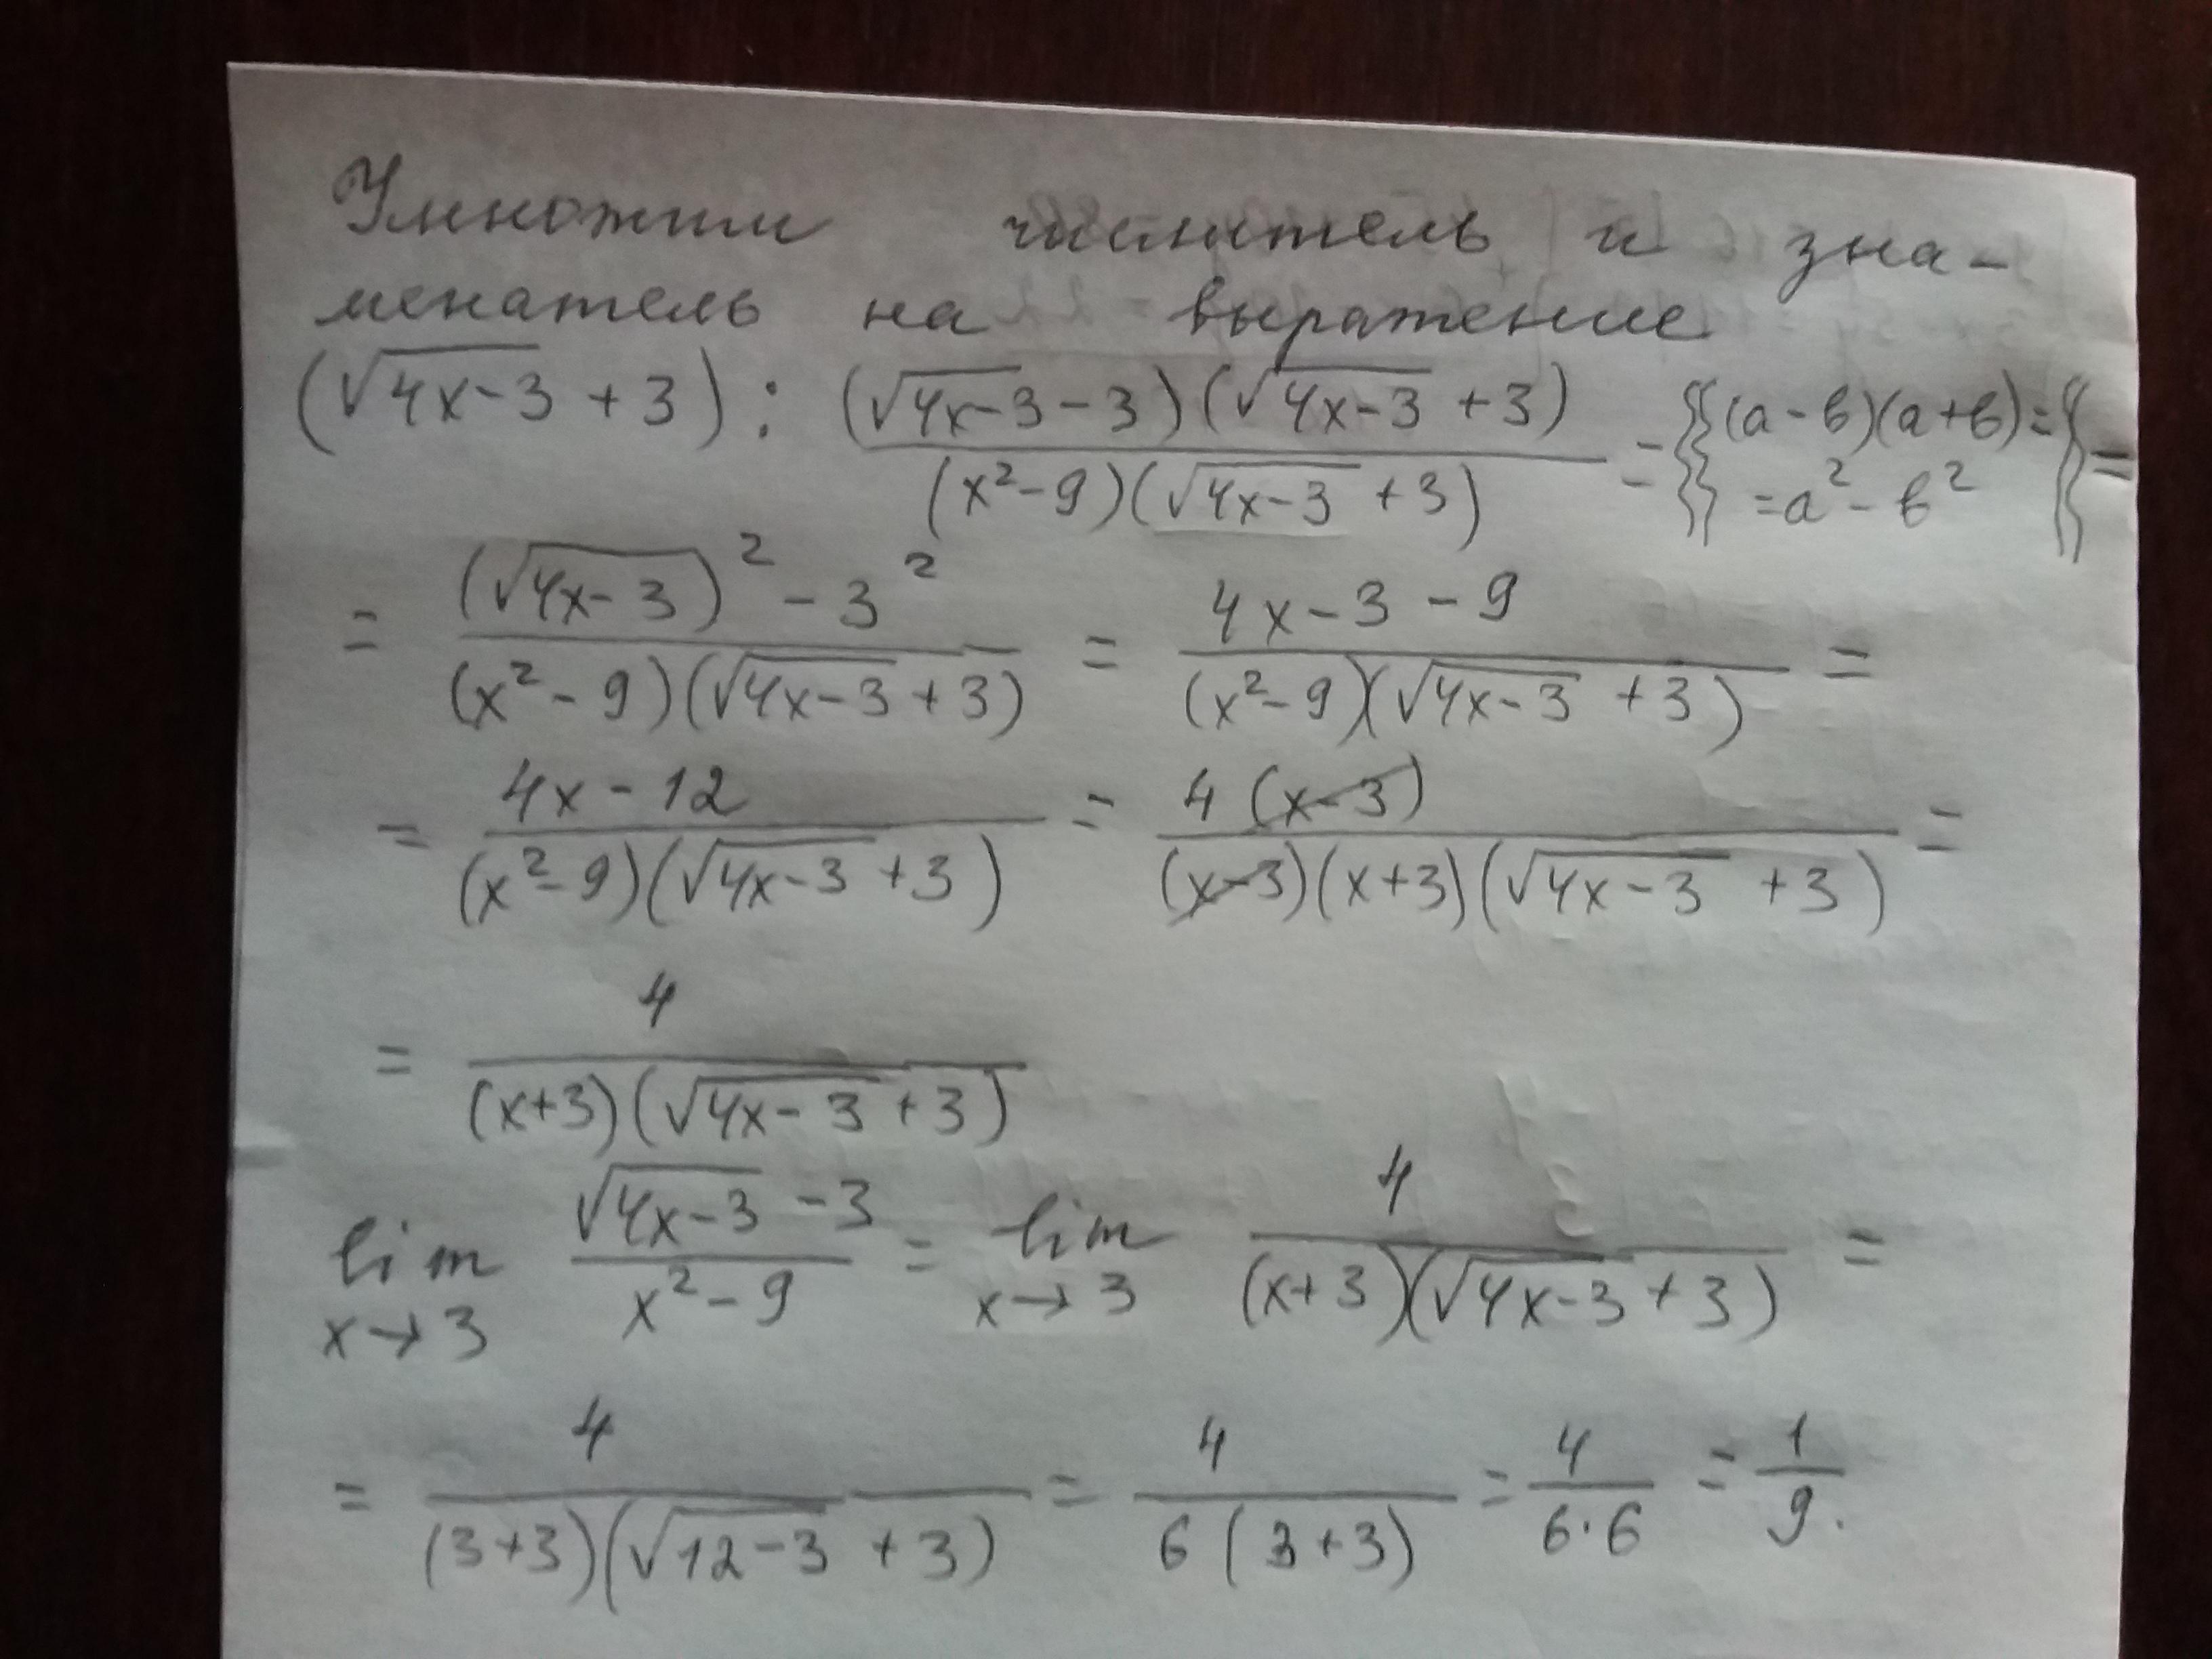 Умножим числитель и зна-
менатель на выражение
(√(4x-3) + 3) : ((√(4x-3) - 3)(√(4x-3) + 3))/((x²-9)(√(4x-3) + 3)) = {{(a-в)(a+в)= =a²-в²}} =
= ((√(4x-3))² - 3²)/((x²-9)(√(4x-3)+3)) = (4x-3-9)/((x²-9)(√(4x-3)+3)) =
= (4x-12)/((x²-9)(√(4x-3)+3)) = (4(x-3))/((x-3)(x+3)(√(4x-3)+3)) =
= 4/((x+3)(√(4x-3)+3))
lim x→3 (√(4x-3) - 3)/(x²-9) = lim x→3 4/((x+3)(√(4x-3)+3)) =
= 4/((3+3)(√(12-3)+3)) = 4/(6(3+3)) = 4/(6·6) = 1/9.